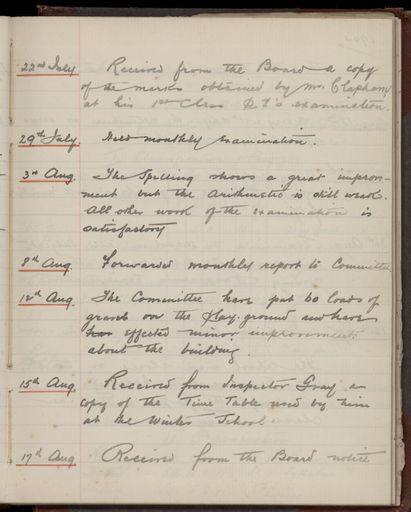 22nd July. Received from the Board a copy
of the marks obtained by Mr. Clapham
at his 1st Class D.T's examination.
29th July. Held monthly examination.
3rd Aug. The Spelling shows a great improve-
ment but the Arithmetic is still weak.
All other work of the examination is
satisfactory
8th Aug. Forwarded monthly report to Committee
12th Aug. The Committee have put 60 loads of
gravel on the play-ground and have
effected minor improvements
about the building.
15th Aug. Received from Inspector Gray a
copy of the Time Table used by him
at the Winter School
17th Aug. Received from the Board notice